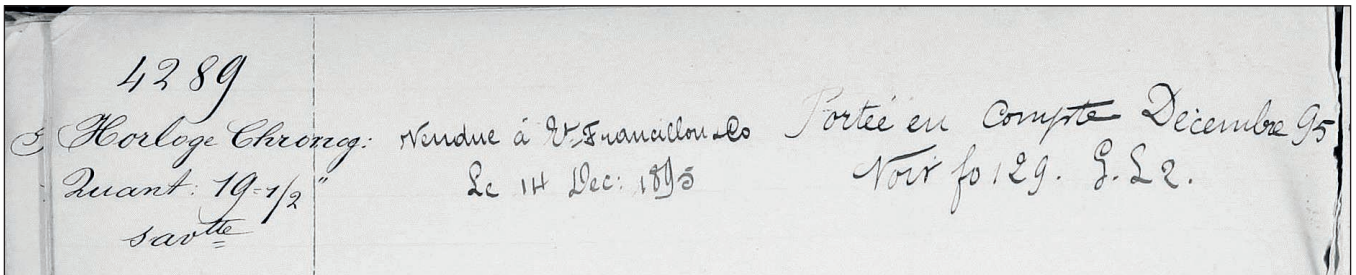 4289
Horloge Chronog:
Quant: 19-1/2"
savtte
Vendue à Et Francillon & Co
Le 14 Dec: 1895
Portée en Compte Décembre 95
Voir fo 129. G. L 2.